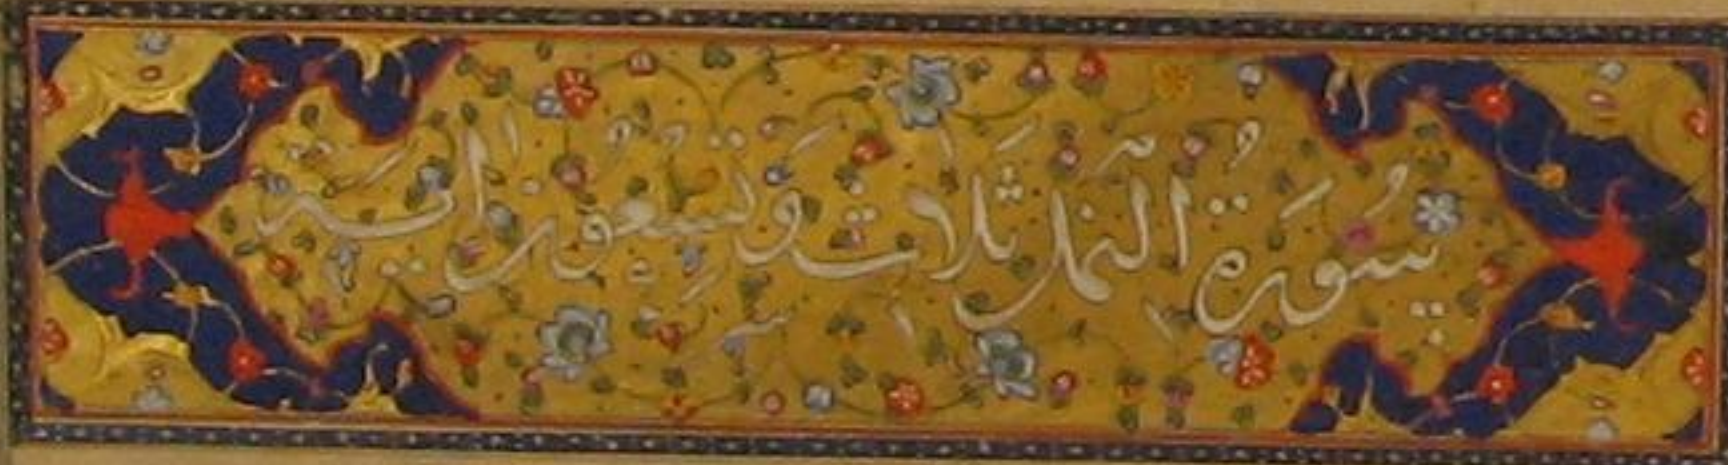 سُورَةُ النَّمْلِ ثَلَاثٌ وَتِسْعُونَ اٰيَة